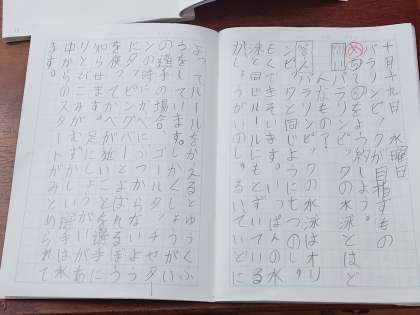 十月十九日 水曜日
パラリンピックが目指すもの
め 調べて分かったことをようやくしよう。
問い パラリンピックの水泳とはど
んなもの?
答え パラリンピックの水泳はオリ
ンピックと同じように七つの
もくできそいます。いっぱんの水
泳と同じルールにもとづいている
がしょうがいのしゅるいていどに
よってルールをかえるとゆうくふ
うをしています。しかくしょうがい
の選手の場合、ゴールタッチやタ
ーンの時にかべにぶつからないよう
にタッピングバーとよばれるぼう
を使ってかべが近いことを選手に
知らせます。足にしょうがいがあ
りとびこみがむずかしい選手は水
中からのスタートがみとめられて
ます。